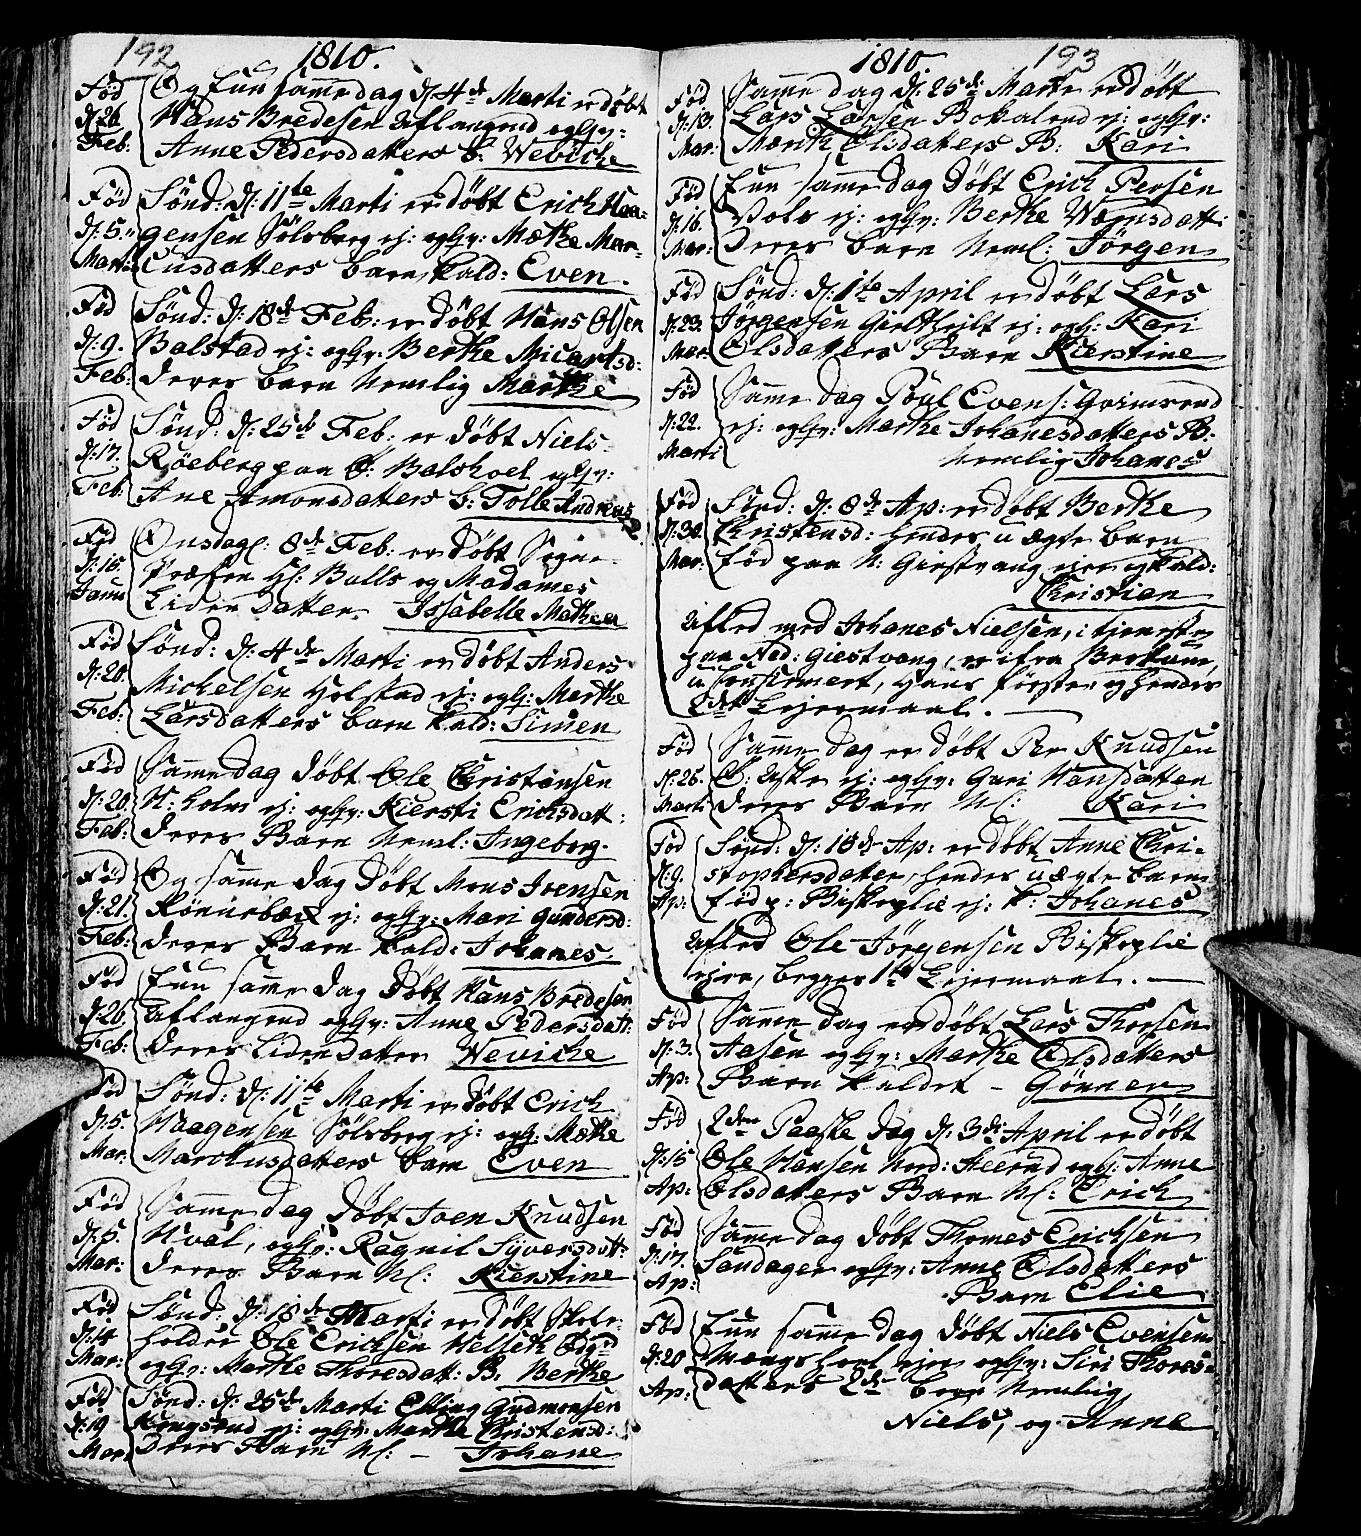 192
1810.
Fød d: 26 Feb: Og Eun samme dag d: 4de Marti er døbt
Hans Bredesen Aflangrud og hv:
Anne Pedersdatters b. Weviche
Fød d: 5. Marti Sønd: d: 11te Marti er døbt Erich Haa-
gensen Sølsberg ej: og hv: Mærthe Mar-
cusdatters barn kald: Even.
Fød d: 9. Feb: Sønd: d: 18de Feb: er døbt Hans Olsen
Balstad ej: og hv: Berthe Micarlsd:
deres barn Nemlig Marthe
Fød d: 17. Feb: Sønd: d: 25de Feb: er døbt Niels
Røeberg paa Balshoel og hv:
Ane Amonsdatters b: Tolle Andreas
Fød d: 15. Janu Onsdag: 8de Feb: er døbt Sogne-
Præsten H: Balls og Madames
Liden Datter Issabelle Mathea
Fød d: 20. Feb: Sønd: d: 4de Marti er døbt Anders
Michelsen Holstad ej: og hv: Marthe
Larsdatters barn kald: Simen
Fød d: 20. Feb: Samme dag døbt Ole Christansen
N: holm ej: og hv: Kiersti Erichsdatt:
deres Barn Neml: Ingeborg.
Fød d: 21. Feb: Og samme dag døbt Mons Ivensen
ej: og hv: Mari Gundersd:
deres Barn kald: Johanes.
Fød d: 26. Feb: Eun samme dag døbt Hans Bredesen
Aflangrud og hv: Anne Pedersdatt:
deres liden datter Weviche
Fød d: 5. Mar: Sønd: d: 11te Marti er døbt Erich
Haagensen Sølsberg ej: og h: Mæthe
Marchusdatters barn Even
Fød d: 5. Mar: Samme dag døbt Iven Knudsen
Hval, og hv: Ragnil Syversdatt:
deres Barn Nl: Kierstine
Fød d: 14 Mar: Sønd: d: 18de Marti er døbt Skole-
holder Ole Erichsen Helseth
og hv: Marthe Thoresdatt: B. Berthe
Fød d: 19 Mar: Sønd: d: 25de Marti Elling Gudmonsen
Kongsrud ej: og hv: Marthe Christensd:
deres Barn Nl: - Johane
1810.
193
Fød d: 13. Mar: Samme dag d: 25de Marti er døbt
Lars Larsen Bokalrud ej: og hv:
Marth Olsdatters B: Kari
Fød d: 16. Mar: Eun samme dag døbt Erich Persen
Vols ej: og hv: Berthe
deres barn Neml: Jørgen
Fød d: 23. Mar: Sønd: d: 1te April er døbt Lars
Jørgensen ej: og h: Kari
Olsdatters Barn Kierstine
Fød d: 22. Marti Samme dag Poul Evens: Grimsrud
ej: og hv: Marthe Johanesdatters B:
Nemlig Johanes
Fød d: 30. Mar: Sønd: d: 8de Ap: er døbt Berthe
Christensd: hendes u ægte barn
fød paa N: Giestvang ejer og kald:
Christian
Afled med Johanes Nielsen, i tjeneste
paa Ned: Giestvang, er ifra Berkum,
u confirmert, Hans første og hendes
2det Lejermaal.
Fød d: 26. Marti Samme dag er døbt Per Knudsen
ej: og hv: Guri Hansdatter
deres Barn Nl: Kari
Fød d: 9. Ap: Sønd: d: 15de Ap: er døbt Anne Chri-
stophersdatter, hendes uægte barn
fød p: Biskoplie ej: k: Johanes
Afled Ole Jørgensen Biskoplie
ejere, begges 1te Lejermaal.
Fød d: 3. Ap: Samme dag er døbt Lars Thorsen
Aasen og hv: Marthe Olsdatters
Barn kaldet - Gønner
Fød d: 15 Ap: 2den Paaske dag d: 3de April er døbt
Ole Hansen Nord: og h: Anne
Olsdatters Barn Nl: Erich
Fød d: 17. Ap: Samme dag døbt Thomes Erichsen
Sandager og hv: Anne Olsdatters
Barn Elie
Fød d: 20 Ap: Eun samme dag døbt Niels Evensen
ejer og hv: Siri Thores-
datters 2de børn Nemlig
Niels, og Anne